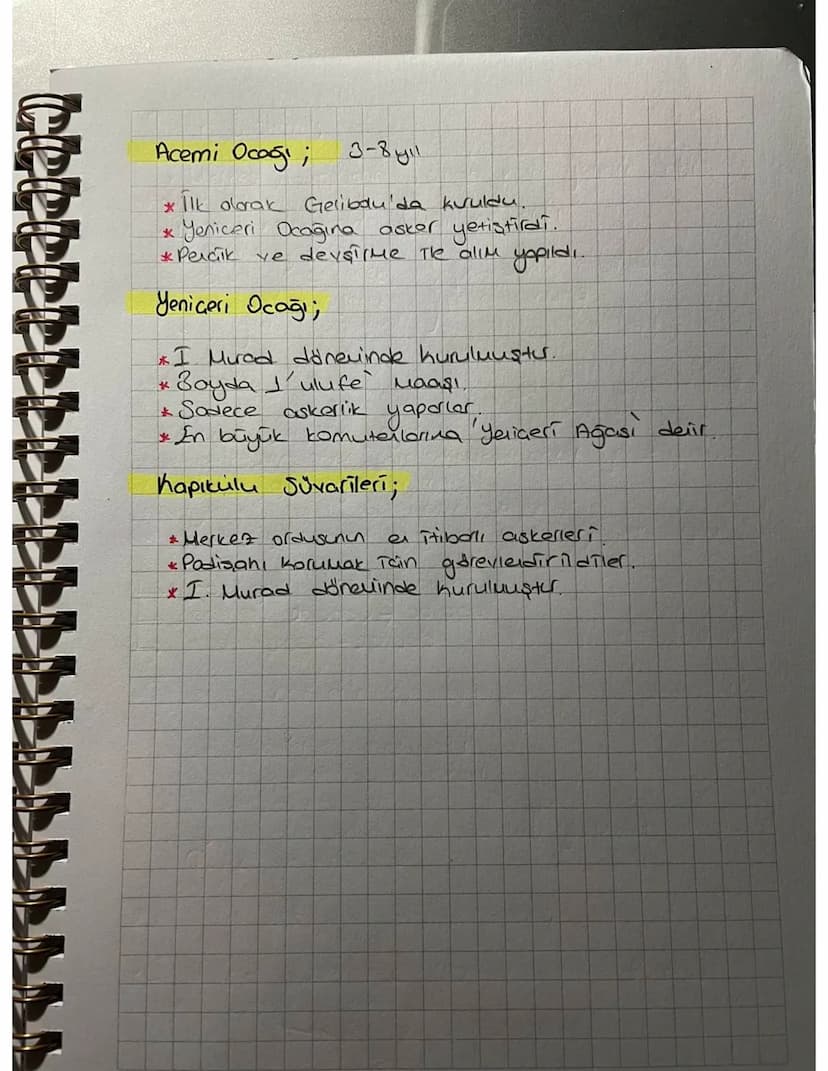 Acemi Ocağı ; 3-8 yıl
* İlk olarak Gelibolu'da kuruldu.
* Yeniçeri Ocağına asker yetiştirdi.
* Pencik ve devşirme ile alım yapıldı.
Yeniçeri Ocağı;
* I Murad döneminde kurulmuştur.
* 3 ayda 1 'ulufe' maaşı.
* Sadece askerlik yaparlar.
* En büyük komutanlarına 'Yeniçeri Ağası' denir.
Kapıkulu Süvarileri;
* Merkez ordusunun en itibarlı askerleri.
* Padişahı korumak için görevlendirildiler.
* I. Murad döneminde kurulmuştur.